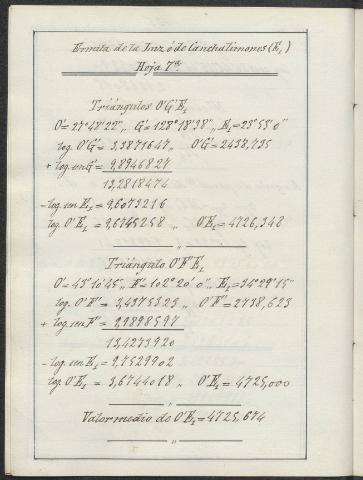 Ermita de la Luz ó de Canchalimones (E₂)
Hoja 7ª
Triángulos O'G'E₂
O'=27°48'22" „ G'=128°18'38" „ E₂=23°53'0"
log. O'G'= 3,3871647 „ O'G'=2438,735
+ log. sen G'= 9,8946827
13,2818474
- log. sen E₂= 9,6073216
log. O'E₂ = 9,6745258 „ O'E₂=4726,348
„
Triángulo O'F'E₂
O'=43°10'45" „ F'=102°20'0" „ E₂=34°29'15"
log. O'F' = 3,4375323 „ O'F'=2738,623
+ log. sen F'= 9,9898597
13,4273920
- log. sen E₂= 9,7529902
log. O'E₂ = 3,6744018 „ O'E₂ = 4725,000
„
Valor medio de O'E₂=4725,674
„